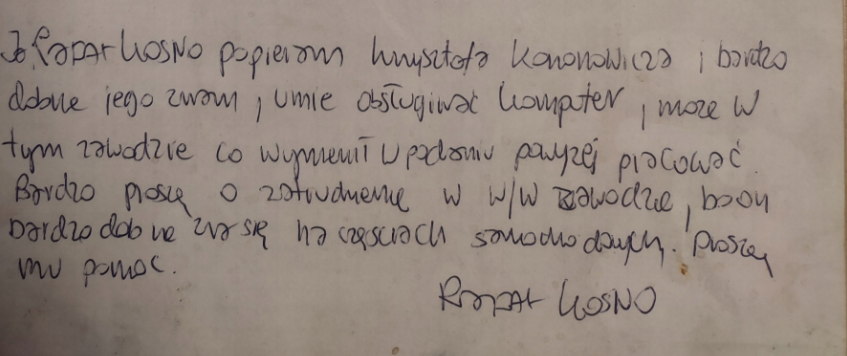 Ja Rafał Kosno popieram Krzysztofa Kononowicza i bardzo
dobrze jego znam, umie obsługiwać komputer, może w
tym zawodzie co wymienił w podaniu powyżej pracować.
Bardzo proszę o zatrudnienie w w/w zawodzie, bo on
bardzo dobrze zna się na częściach samochodowych. Proszę
mu pomoc.
Rafał Kosno